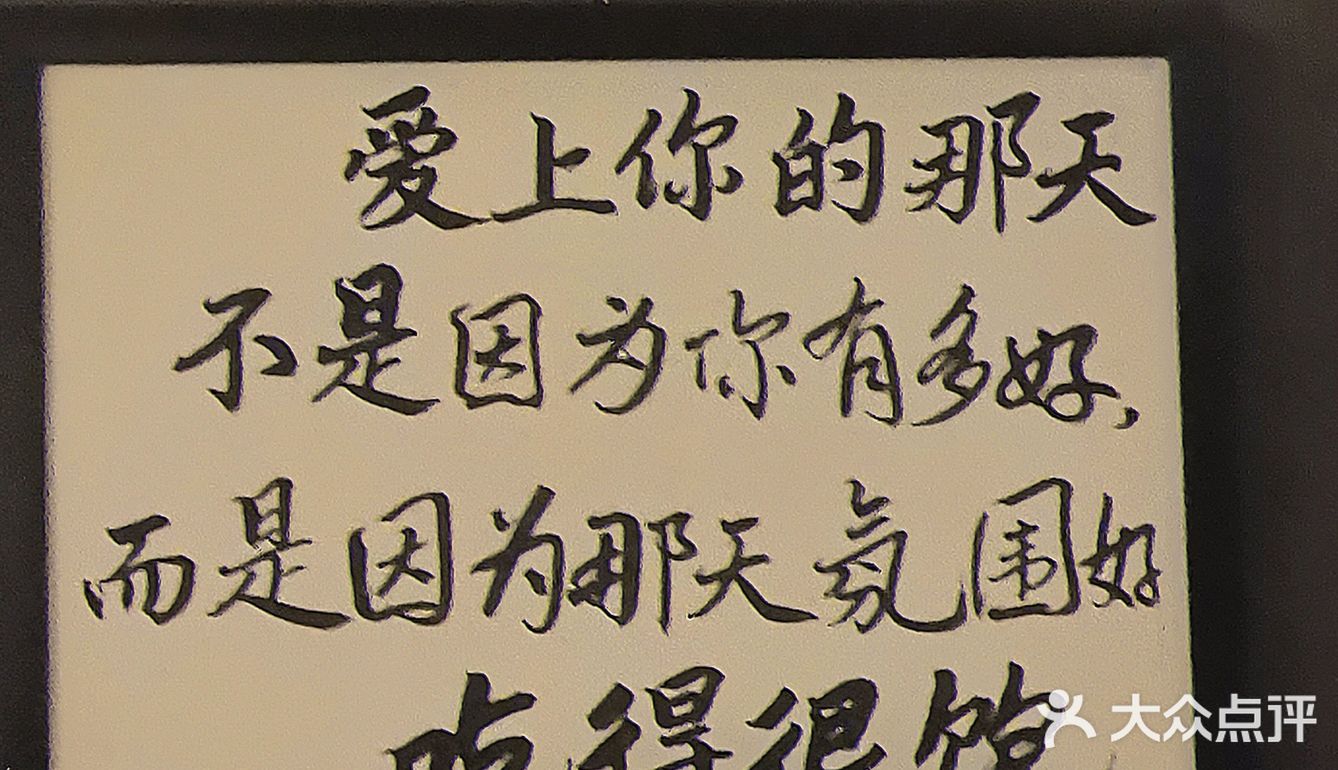 爱上你的那天
不是因为你有多好,
而是因为那天氛围好
吃得很饱
大众点评